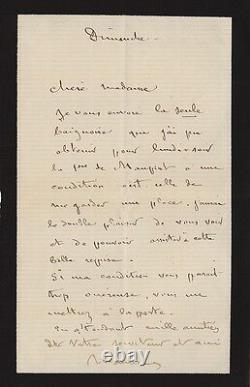 Dimanche
chère madame
Je vous envoie la seule
baignoire que j'ai pu
obtenir pour
condition est celle de
me garder une place. J'aurai
le double plaisir de vous voir
et de pouvoir assister à cette
belle reprise.
Si ma condition vous parait
trop onéreuse, vous me
mettrez à la porte.
En attendant mille amitiés
de votre serviteur et ami